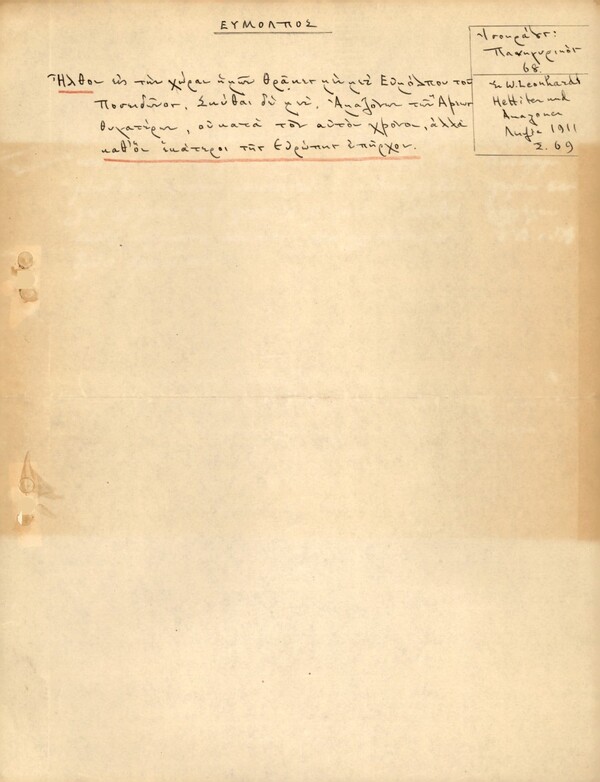 ΕΥΜΟΛΠΟΣ
Ἦλθον εἰς τὴν χώραν ἡμῶν Θρᾷκες μὲν μετ' Εὐμόλπου τοῦ
Ποσειδῶνος, Σκύθαι δὲ μετ' Ἀμαζόνων τῶν Ἄρεως
θυγατέρων, οὐ κατὰ τὸν αὐτὸν χρόνον, ἀλλὰ
καθ' ὃν ἑκάτεροι τῆς Εὐρώπης ἐπῆρχον.
Ἰσοκράτης:
Πανηγυρικός
68
W. Leonhardt
Hettiter und
Amazonen
1911
Σ. 69